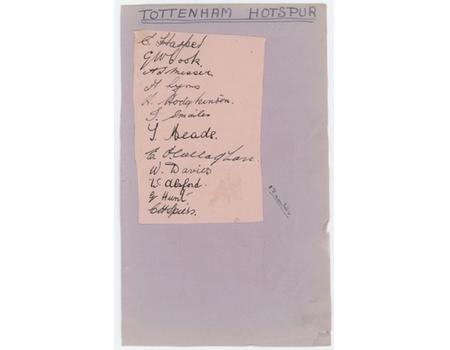 TOTTENHAM HOTSPUR
E. Harper
G W Cook.
A T Messer.
A Lyons
H. Hodgkinson.
T. Smailes
T. Meade.
E O'Callaghan.
W. Davies
W Alsford.
G Hunt.
C H Spiers.